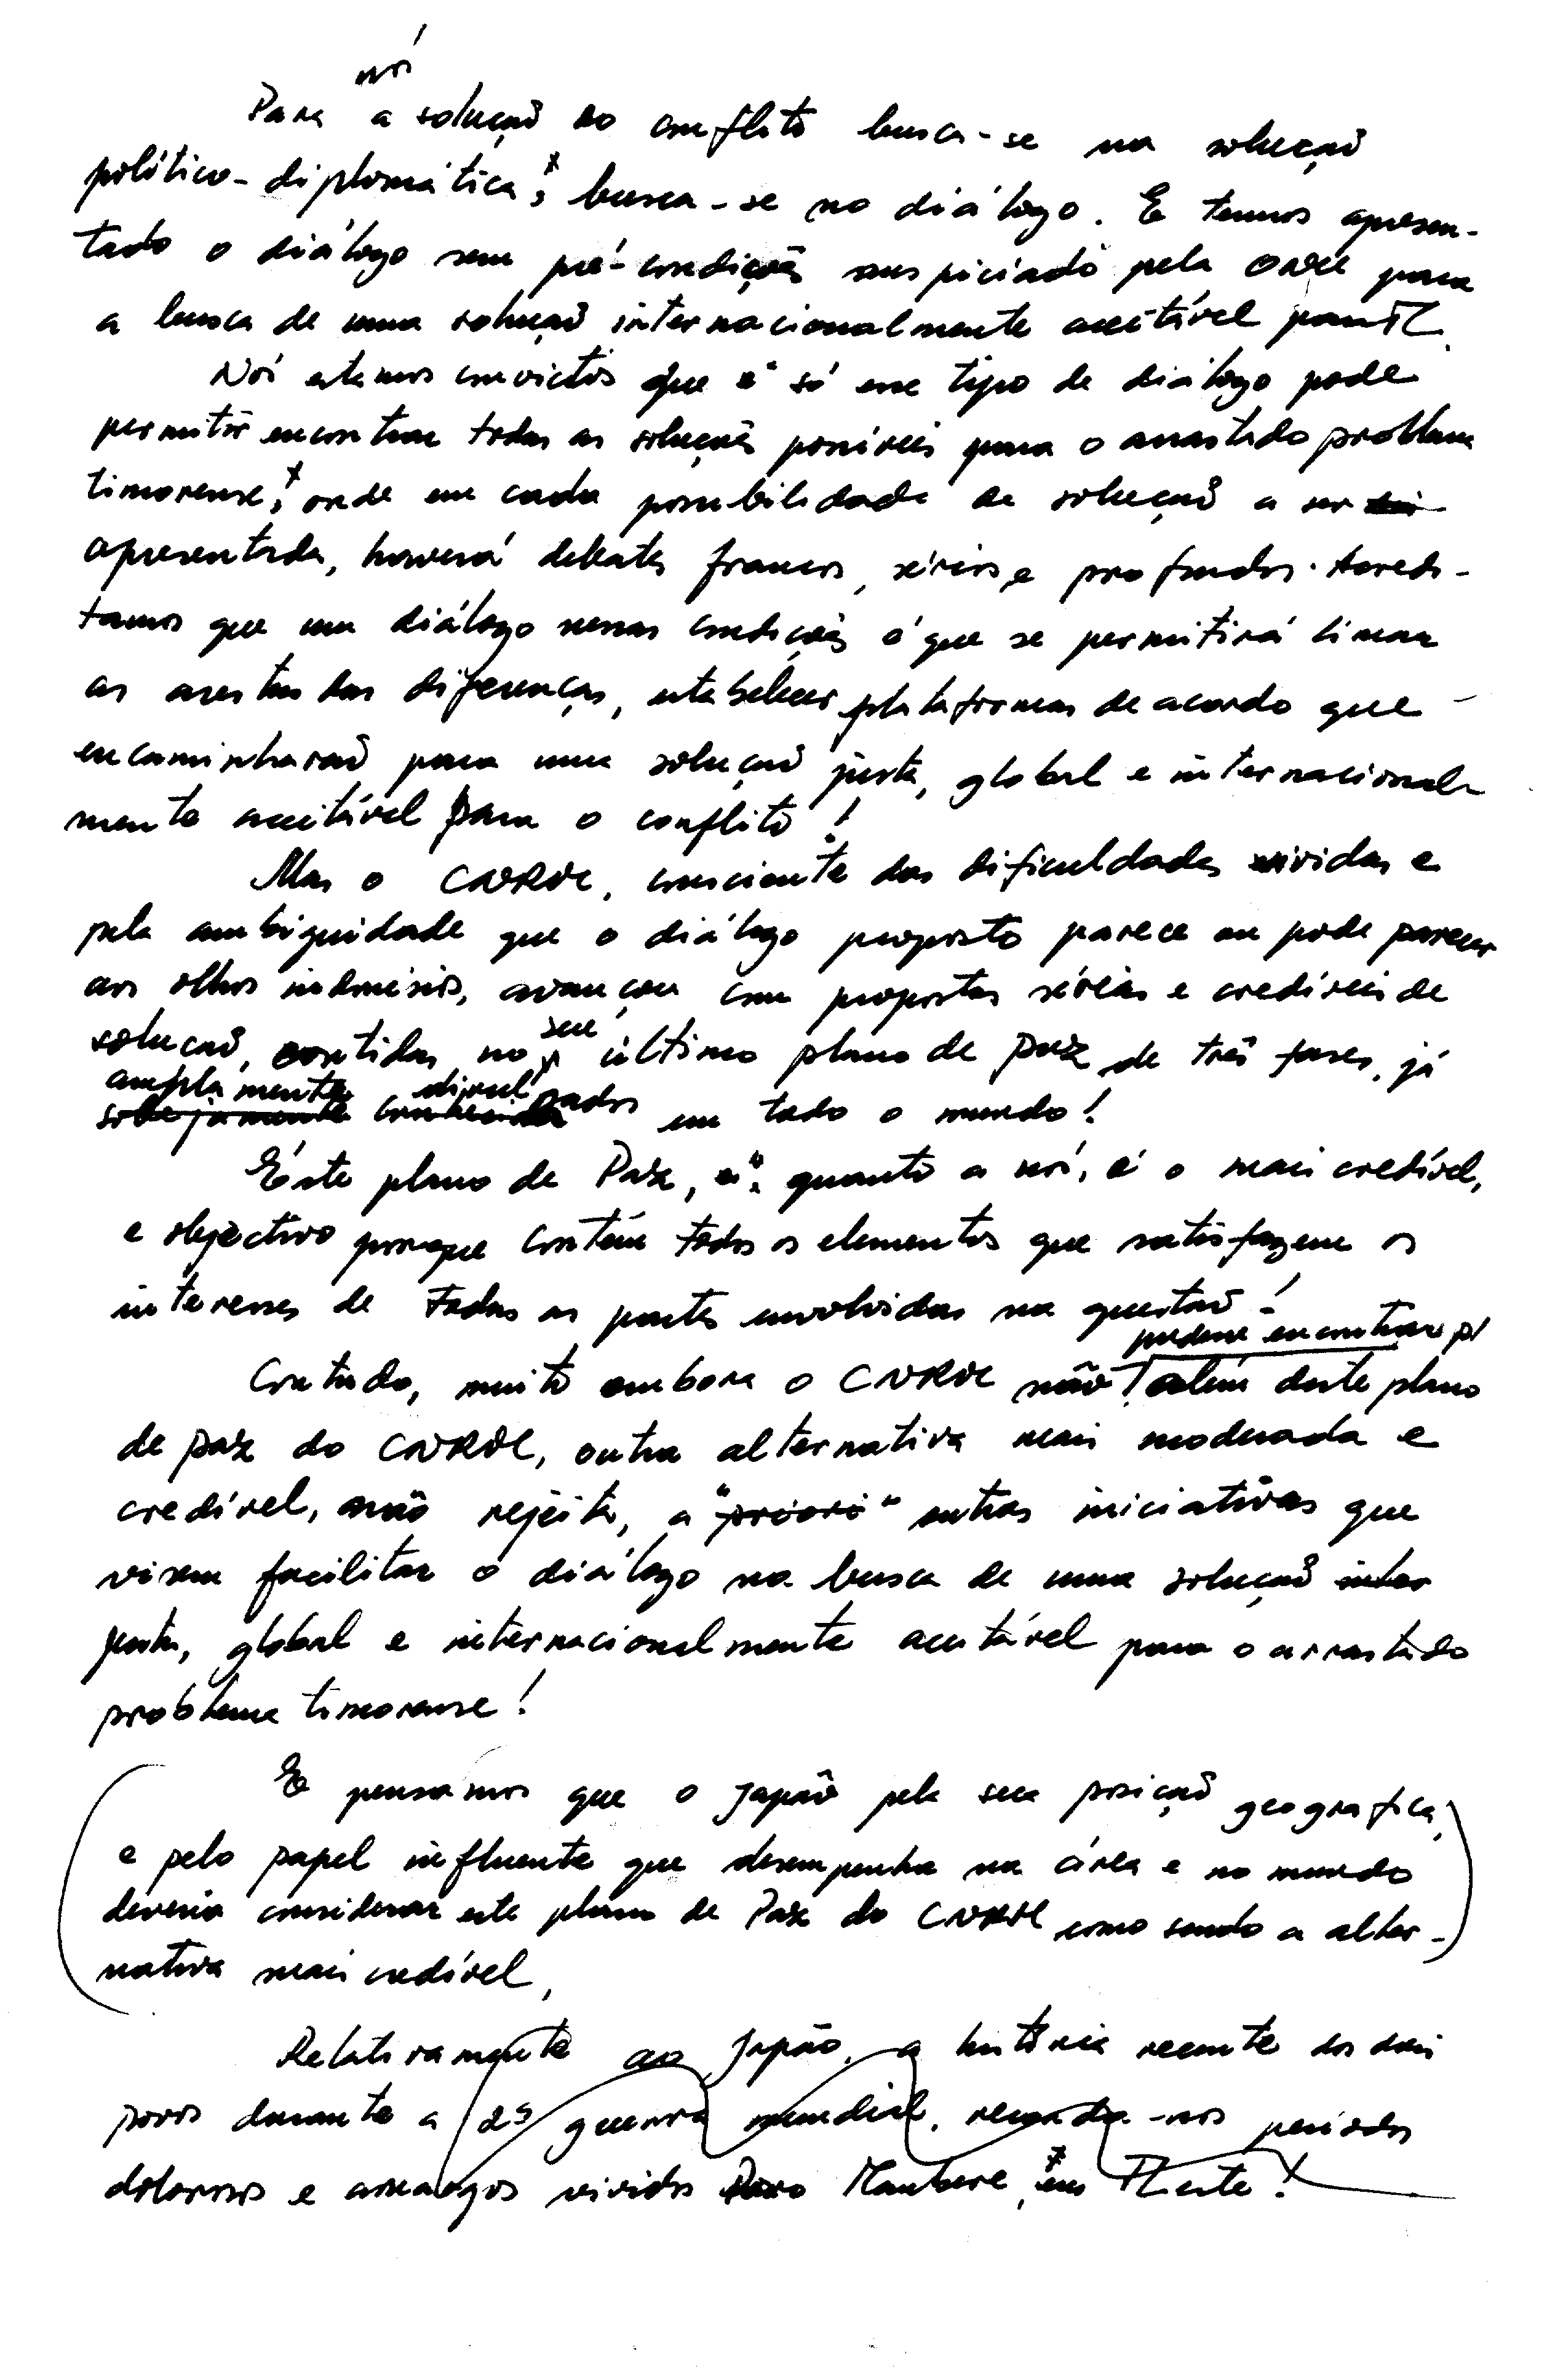 nós
Para a solução do conflito busca-se na solução
político-diplomática, busca-se no diálogo. E temos apresen-
tado o diálogo sem pré-condições auspiciado pela ONU para
a busca de uma solução internacionalmente aceitável para TL.
Nós estamos convictos que só esse tipo de diálogo pode
permitir encontrar todas as soluções possíveis para o arrastado problema
timorense, onde em cada possibilidade de solução a ser
apresentada, haverá debates francos, sérios e profundos. Acredi-
tamos que um diálogo nessas condições é que se permitirá limar
as arestas das diferenças, estabelecer plataformas de acordo que
encaminharão para uma solução justa, global e internacional-
mente aceitável para o conflito!
Mas o CNRM, consciente das dificuldades vividas e
pela ambiguidade que o diálogo proposto parece ou pode parecer
aos olhos indonésios, avançou com propostas sérias e credíveis de
seu
solução, contidas no último plano de paz de três fases, já
amplamente divul
sobejamente conhecida gados em todo o mundo!
Este plano de Paz, quanto a nós, é o mais credível,
e objectivo porque contém todos os elementos que satisfazem os
interesses de todas as partes envolvidas na questão!
pudesse encontrar p/
Contudo, muito embora o CNRM não além deste plano
de paz do CNRM, outra alternativa mais moderada e
credível, não rejeita, a "priori" outras iniciativas que
visem facilitar o diálogo na busca de uma solução inter
justa, global e internacionalmente aceitável para o arrastado
problema timorense!
E pensamos que o Japão pela sua posição geografica,
e pelo papel influente que desempenha na área e no mundo
deveria considerar este plano de Paz do CNRM como sendo a alter-
nativa mais credível,
Relativamente ao Japão, a história recente dos dois
povos durante a 2ª guerra mundial, recorda-nos periodos
dolorosos e amargos vividos Povo Maubere, em TLeste!